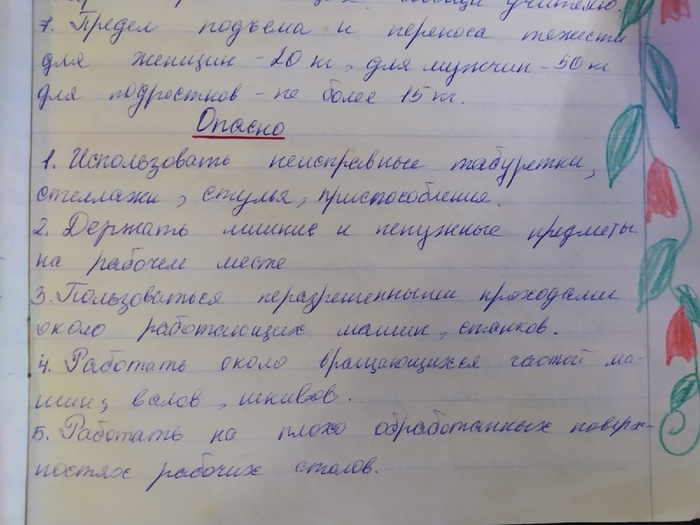 сообщи учителю.
7. Предел подъема и переноса тяжести
для женщин - 20 кг, для мужчин - 50 кг
для подростков - не более 15 кг.
Опасно
1. Использовать неисправные табуретки,
стеллажи, стулья, приспособление.
2. Держать лишние и ненужные предметы
на рабочем месте
3. Пользоваться неразрешенными проходами
около работающих машин, станков.
4. Работать около вращающихся частей ма-
шин, валов, шкивов.
5. Работать на плохо обработанных поверх-
ностях рабочих столов.